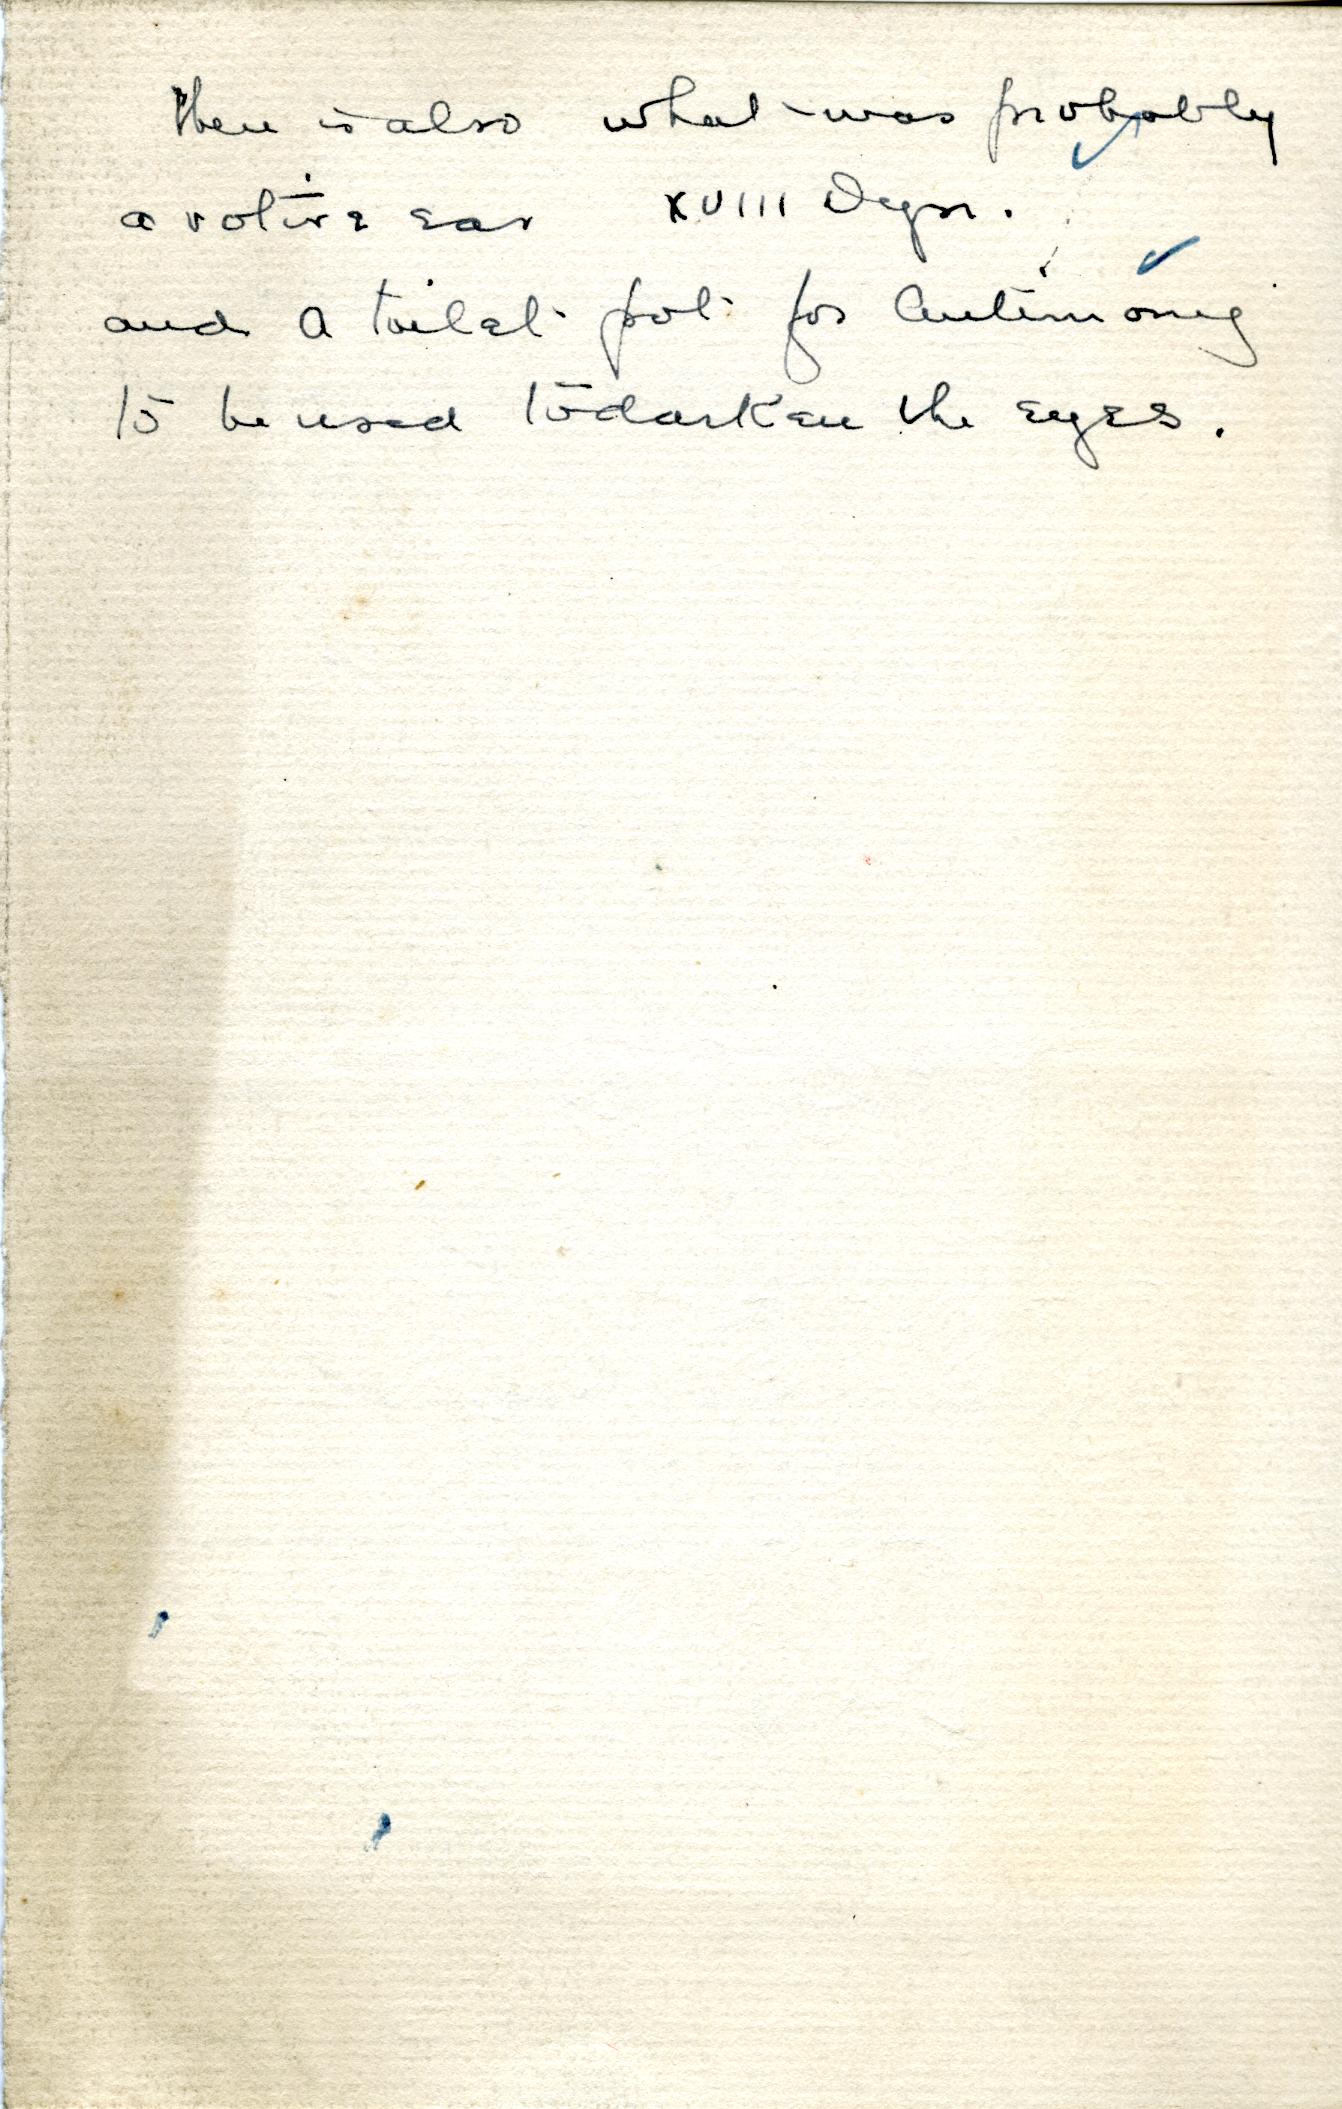 there is also what was probably
a votive ear XVIII Dyn.
and a toilet pot for Antimony
to be used to darken the eyes.